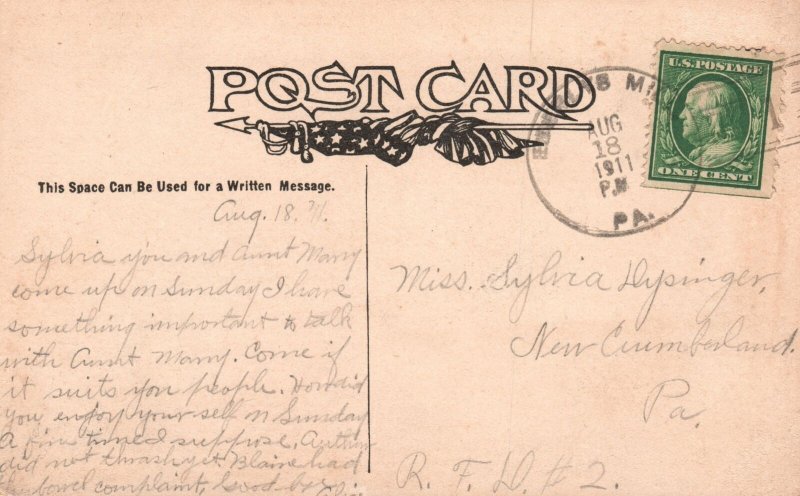 POST CARD
U.S. POSTAGE
ONE CENT
AUG
18
1911
P.M.
PA.
This Space Can Be Used for a Written Message.
Aug. 18, '11.
Sylvia you and Aunt Mary
come up on Sunday I have
something important to talk
with Aunt Mary. Come if
it suits you people. How did
you enjoy your self on Sunday
A fine time I suppose. Arthur
did not thrash yet. Blaine had
bowel complaint, Good-bye
Miss. Sylvia Dysinger,
New Cumberland.
Pa.
R. F. D. # 2.